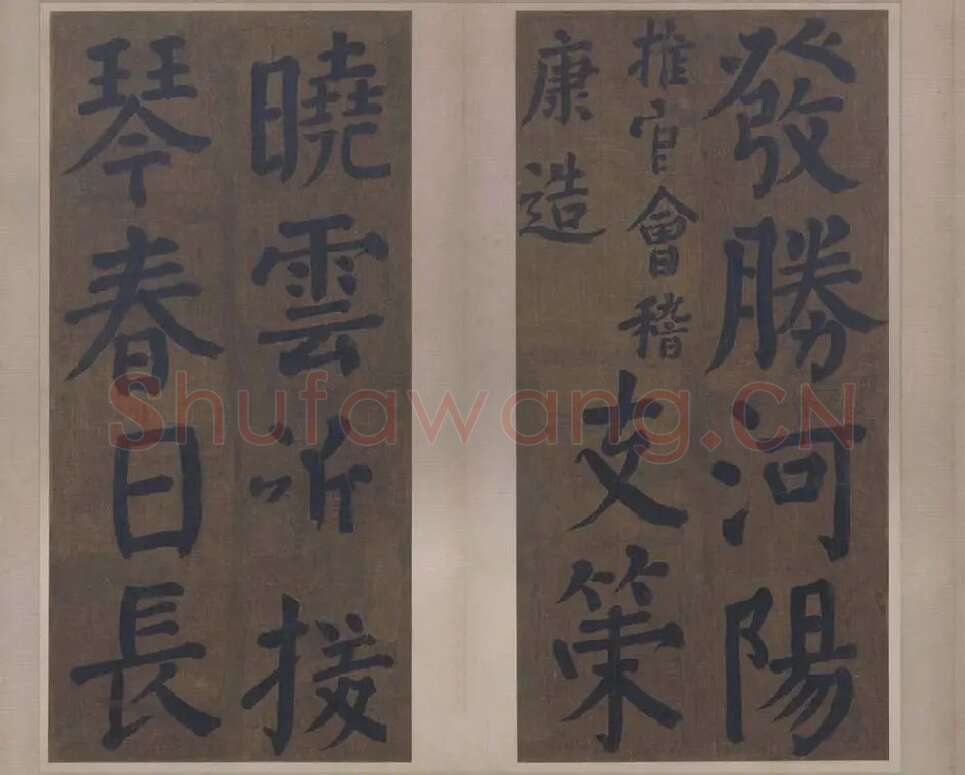 發勝河陽
推官會稽
康造
支策
曉雲近援
琴春日長
Shufawang.CN